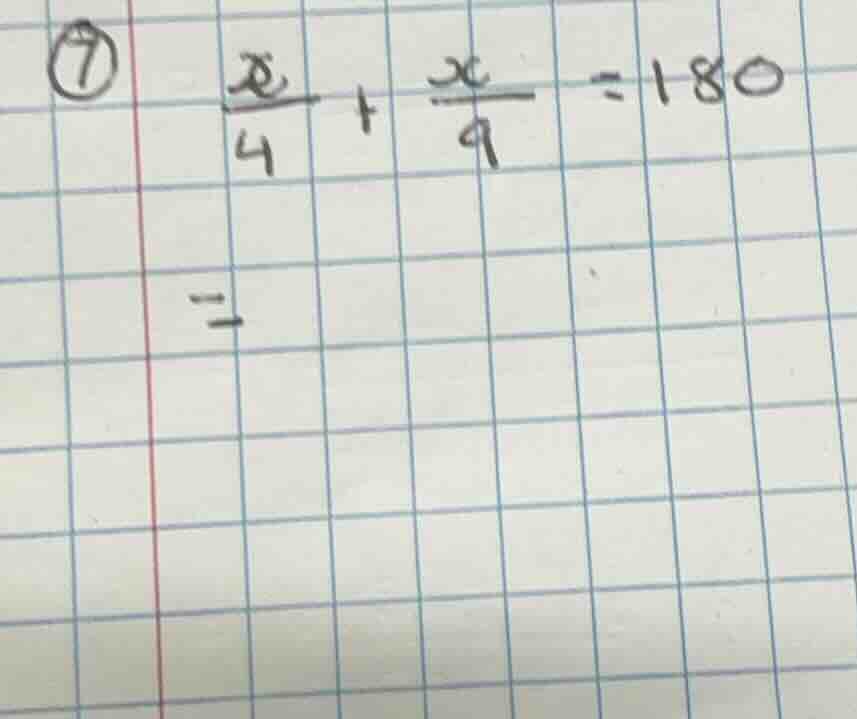 ⑦ x/4 + x/9 = 180
=